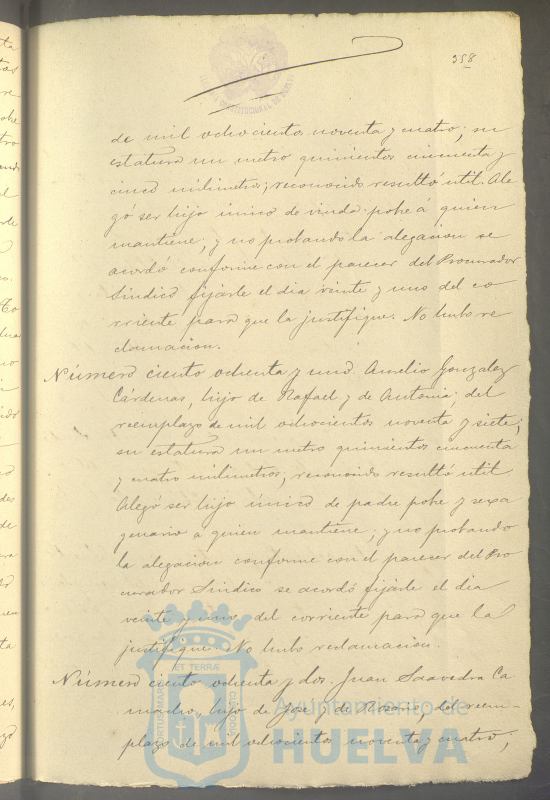 358
de mil ochocientos noventa y cuatro; su
estatura un metro quinientos cincuenta y
cinco milimetros; reconocido resultó util. Ale
gó ser hijo único de viuda pobre á quien
mantiene; y no probando la alegacion se
acordó conforme con el parecer del Procurador
Sindico fijarle el dia veinte y uno del co
rriente para que la justifique. No hubo re
clamacion.
Número ciento ochenta y uno. Amelio Gonzalez
Cárdenas, hijo de Rafael y de Antonia; del
reemplazo de mil ochocientos noventa y siete;
su estatura un metro quinientos cincuenta
y cuatro milimetros; reconocido resultó util
Alegó ser hijo único de padre pobre y sexa
genario a quien mantiene; y no probando
la alegacion conforme con el parecer del Pro
curador Sindico se acordó fijarle el dia
veinte y uno del corriente para que la
justifique. No hubo reclamacion.
Número ciento ochenta y dos. Juan Saavedra Ca
macho, hijo de José y de Rosario, del reem-
plazo de mil ochocientos noventa y cuatro;
ET TERRÆ
PORTUS MARIS
CUSTODIA
Ayuntamiento de
HUELVA